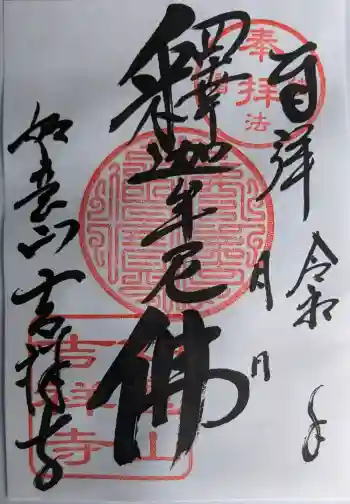 百拝
令和 年 月 日
釋迦牟尼佛
如意山 吉祥寺
奉拝
法
吉祥寺
山